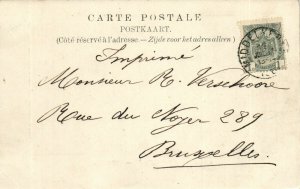 CARTE POSTALE
POSTKAART.
(Côté réservé à l'adresse. — Zijde voor het adres alleen)
Imprimé
Monsieur R. Verschoore
Rue du Noyer 289
Bruxelles.